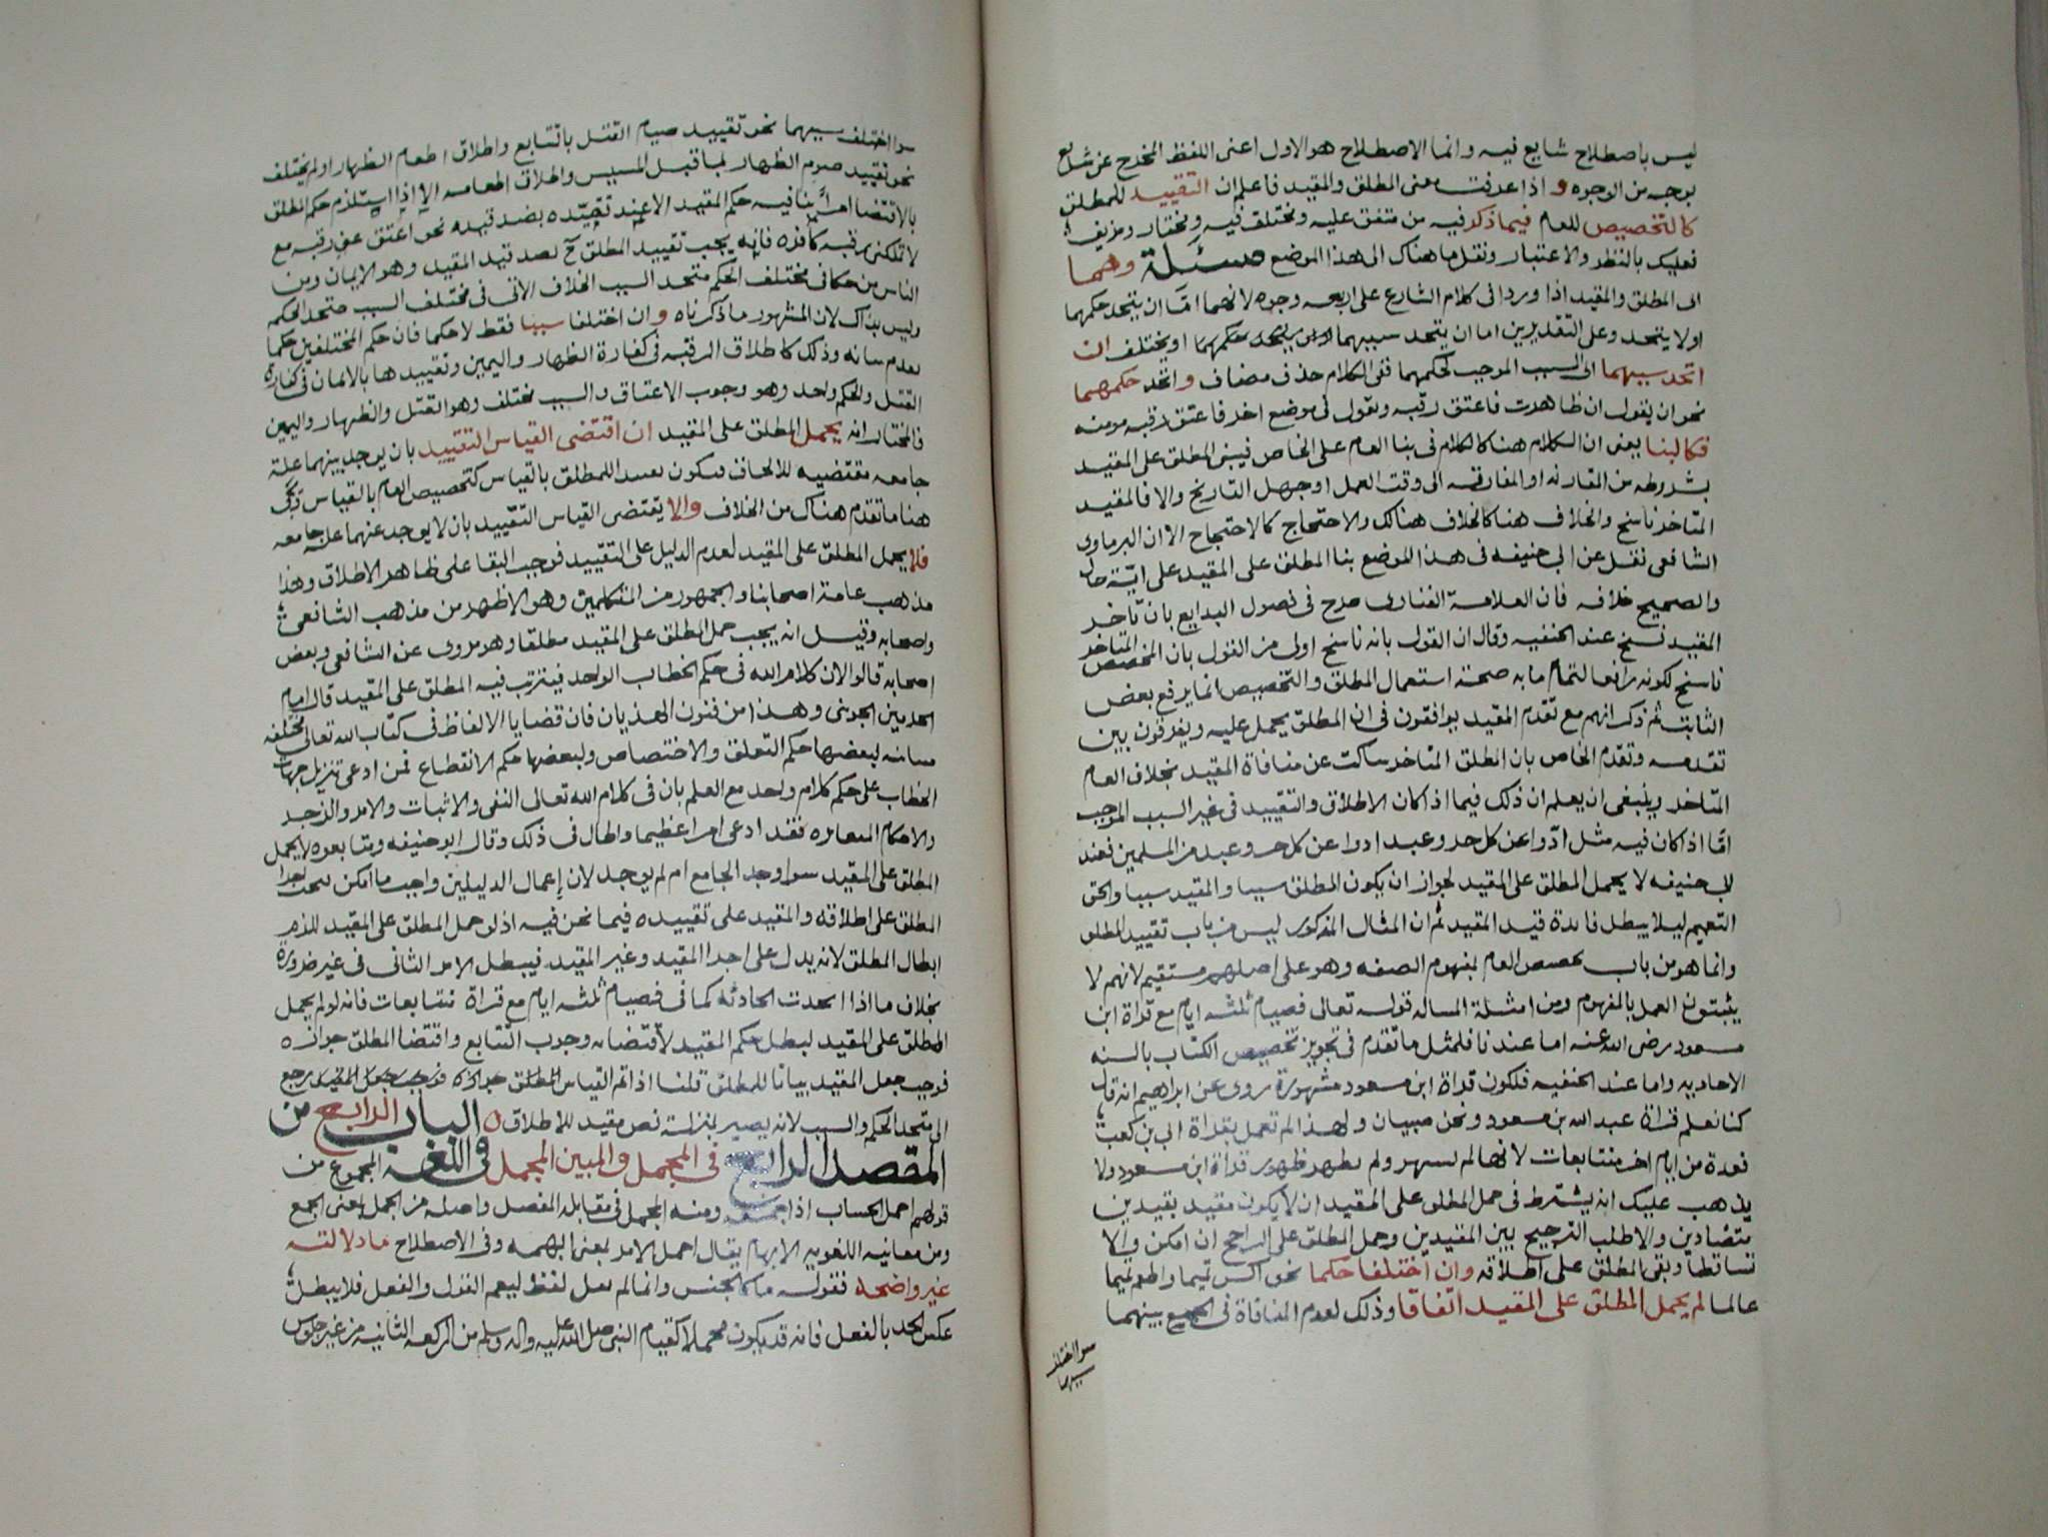 ليس باصطلاح شايع فيه وانما الاصطلاح هو الاول اعنى اللفظ المخرج عن شايع
بوجه من الوجوه و اذا عرفت معنى المطلق والمقيد فاعلم ان التقييد للمطلق
كالتخصيص للعام فيما ذكر فيه من متفق عليه ومختلف فيه ومختار ومزيف
فعليك بالنظر والاعتبار ونقل ما هناك الى هذا الموضع مسئلة وهما
اى المطلق والمقيد اذا وردا فى كلام الشارع على اربعه وجوه لانهما امّا ان يتحد حكمهما
او لا يتحد وعلى التقديرين اما ان يتحد سببهما او يختلف ان
اتحد سببهما اى السبب الموجب لحكمهما ففى الكلام حذف مضاف و اتحد حكمهما
نحو ان يقول ان ظاهرت فاعتق رقبه ويقول فى موضع اخر فاعتق رقبه مومنه
فكالبنا يعنى ان الكلام هنا كالكلام فى بنا العام على الخاص فيبنى المطلق على المقيد
بشرطه من المقارنه او المفارقه الى وقت العمل او جهل التاريخ والا فالمقيد
المتاخر ناسخ والخلاف هنا كالخلاف هنالك والاحتجاج كالاحتجاج الا ان البرماوى
الشافعى نقل عن ابى حنيفه فى هذا الموضع بنا المطلق على المقيد على ايّة حال
والصحيح خلافه فان العلامة الفنارى صرح فى فصول البدايع بان تاخر
المقيد نسخ عند الحنفيه وقال ان القول بانه ناسخ اولى من القول بان المخصص المتاخر
ناسخ لكونه رافعا لتمام ما به صحة استعمال المطلق والتخصيص انما يرفع بعض
الثابت ثم ذكر انهم مع تقدم المقيد يوافقون فى ان المطلق يحمل عليه ويفرقون بين
تقدمه وتقدم الخاص بان المطلق المتاخر ساكت عن منافاة المقيد بخلاف العام
المتاخر وينبغى ان يعلم ان ذلك فيما اذا كان الاطلاق والتقييد فى غير السبب الموجب
امّا اذا كان فيه مثل ادّوا عن كل حر وعبد ادوا عن كل حر وعبد من المسلمين فعند
ابى حنيفه لا يحمل المطلق على المقيد لجواز ان يكون المطلق سببا والمقيد سببا والحق
التعميم ليلا يبطل فايدة قيد المقيد ثم ان المثال المذكور ليس من باب تقييد المطلق
وانما هو من باب تخصيص العام بمفهوم الصفه وهو على اصلهم مستقيم لانهم لا
يثبتون العمل بالمفهوم ومن امثلة المساله قوله تعالى فصيام ثلثه ايام مع قراة ابن
مسعود رضى الله عنه اما عندنا فلمثل ما تقدم فى تجويز تخصيص الكتاب بالسنه
الاحاديه واما عند الحنفيه فلكون قراة ابن مسعود مشهورة روى عن ابراهيم انه قال
كنا نعلم قراة عبد الله بن مسعود ونحن صبيان ولهذا لم تعمل بقراة ابى بن كعب
فعدة من ايام اخر متتابعات لانها لم تشهر ولم تظهر ظهور قراة ابن مسعود ولا
يذهب عليك انه يشترط فى حمل المطلق على المقيد ان لا يكون مقيد بقيدين
متضادين والا طلب الترجيح بين المقيدين وحمل المطلق على الراجح ان امكن والا
تساقطا وبقى المطلق على اطلاقه وان اختلفا حكما نحو اكس تيما واطعم تيما
عالما لم يحمل المطلق على المقيد اتفاقا وذلك لعدم المنافاة فى الجمع بينهما
سوا اختلف
سببهما
سوا اختلف سببهما نحو تقييد صيام القتل بالتتابع واطلاق اطعام الظهار او لم يختلف
نحو تقييد صوم الظهار بما قبل المسيس واطلاق اطعامه الا اذا استلزم حكم المطلق
بالاقتضا امراً ينافيه حكم المقيد الا عند تقيّده بضد قيده نحو اعتق عنى رقبه مع
لا تملكنى رقبه كافره فانه يجب تقييد المطلق ح بضد قيد المقيد وهو الايمان ومن
الناس من حكا فى مختلف الحكم متحد السبب الخلاف الاتى فى مختلف السبب متحد الحكم
وليس بذاك لان المشهور ما ذكرناه و ان اختلفا سببا فقط لا حكما فان حكم المختلفين حكما
تقدم بيانه وذلك كاطلاق الرقبه فى كفارة الظهار واليمين وتقييدها بالايمان فى كفارة
القتل والحكم واحد وهو وجوب الاعتاق والسبب مختلف وهو القتل والظهار واليمين
فالمختار انه يحمل المطلق على المقيد ان اقتضى القياس التقييد بان يوجد بينهما علة
جامعه مقتضيه للالحاق فيكون تقييد المطلق بالقياس كتخصيص العام بالقياس
هنا ما تقدم هناك من الخلاف والا يقتضى القياس التقييد بان لا يوجد عنهما علة جامعه
فلا يحمل المطلق على المقيد لعدم الدليل على التقييد فوجب البقا على ظاهر الاطلاق وهذا
مذهب عامة اصحابنا والجمهور من المتكلمين وهو الاظهر من مذهب الشافعى
واصحابه وقيل انه يجب حمل المطلق على المقيد مطلقا وهو مروى عن الشافعى وبعض
اصحابه قالوا لان كلام الله فى حكم الخطاب الواحد فيترتب فيه المطلق على المقيد قال امام
الحرمين الجوينى وهذا من فنون الهذيان فان قضايا الالفاظ فى كتاب الله تعالى مختلفه
متباينه لبعضها حكم التعلق والاختصاص ولبعضها حكم الانقطاع فمن ادعى تنزيل جهات
الخطاب على حكم كلام واحد مع العلم بان فى كلام الله تعالى النفى والاثبات والامر والزجر
والاحكام المتغايره فقد ادعى امرا عظيما واطال فى ذلك وقال ابو حنيفه ومتابعوه لا يحمل
المطلق على المقيد سوا وجد الجامع ام لم يوجد لان إعمال الدليلين واجب ما امكن
المطلق على اطلاقه والمقيد على تقييده فيما نحن فيه اذ لو حمل المطلق على المقيد للزم
ابطال المطلق لانه يدل على اجزا المقيد وغير المقيد فيبطل الامر الثانى فى غير ضرورة
بخلاف ما اذا اتحدت الحادثه كما فى فصيام ثلثه ايام مع قراة متتابعات فانه لو لم يحمل
المطلق على المقيد لبطل حكم المقيد لاقتضائه وجوب التتابع واقتضا المطلق جوازه
فوجب جعل المقيد بيانا للمطلق قلنا اذا تم القياس رجع
الى متحد الحكم والسبب لانه يصير بمنزلة نص مقيد للاطلاق ه الباب الرابع من
المقصد الرابع فى المجمل والمبين المجمل فى اللغه المجموع من
قولهم اجمل الحساب اذا جمعه ومنه المجمل فى مقابله المفصل واصله من الجمل بمعنى الجمع
ومن معانيه اللغويه الابهام يقال اجمل الامر بمعنى ابهمه وفى الاصطلاح ما دلالته
غير واضحة فقوله ما كالجنس وانما لم يقل لفظ ليعم القول والفعل فلا يبطل
عكس الحد بالفعل فانه قد يكون مجملا كقيام النبى صلى الله عليه واله وسلم من الركعه الثانيه من غير جلوس